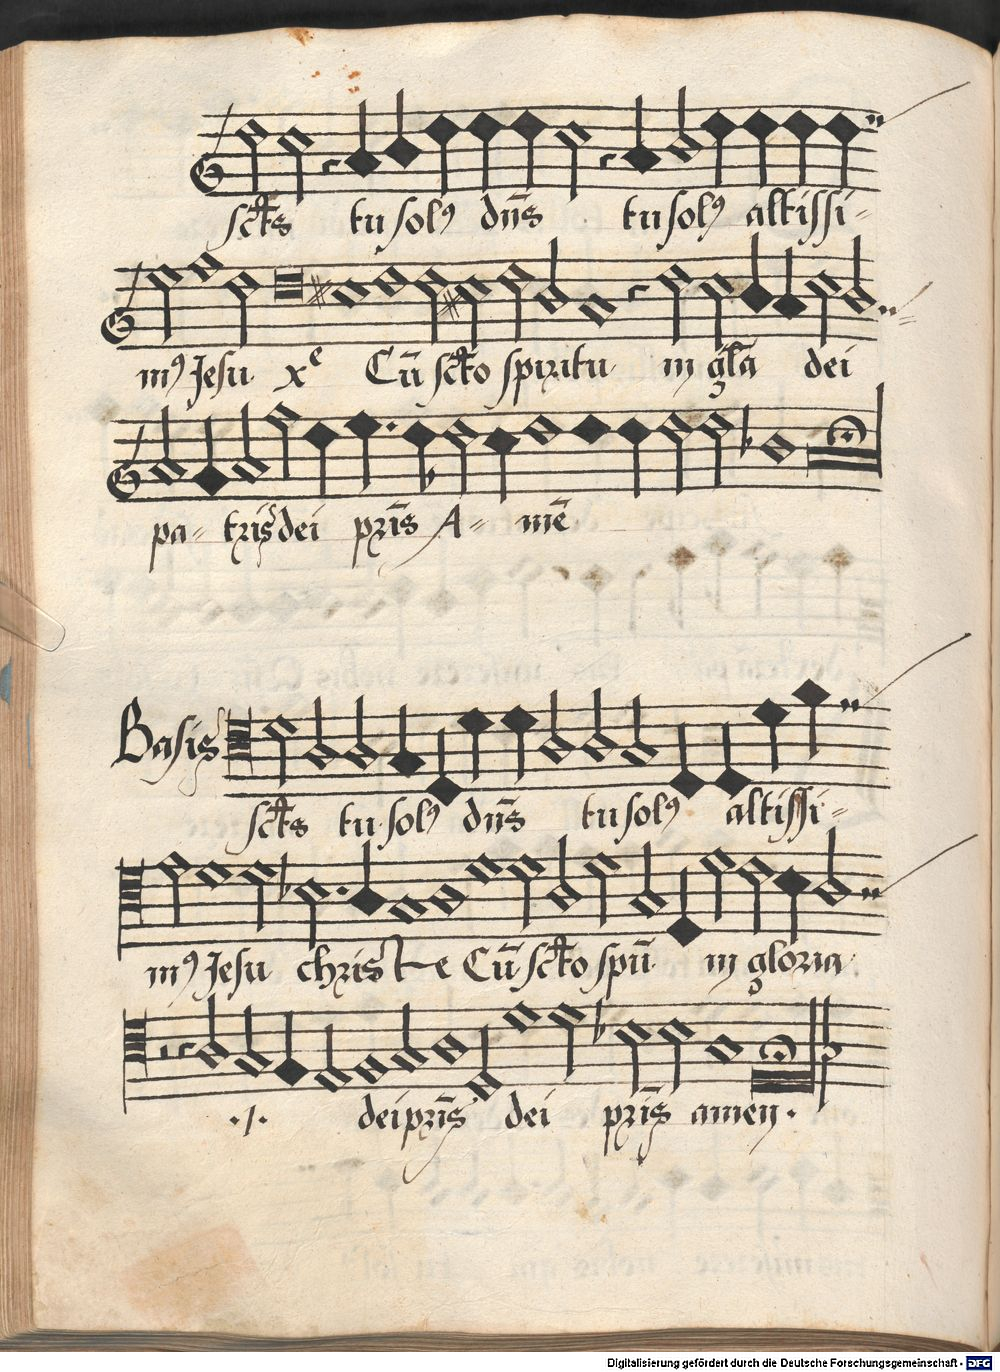 sct̄s tu solꝰ dn̄s tu solꝰ altissi-
mꝰ Jesu xᵉ Cū sct̄o spiritu in gl̄a dei
pa- tris dei pr̄is A- mē
Basis
sct̄s tu solꝰ dn̄s tu solꝰ altissi-
mꝰ Jesu christe Cū sct̄o spū in gloria
.j. dei pr̄is dei pr̄is amen.
Digitalisierung gefördert durch die Deutsche Forschungsgemeinschaft - DFG